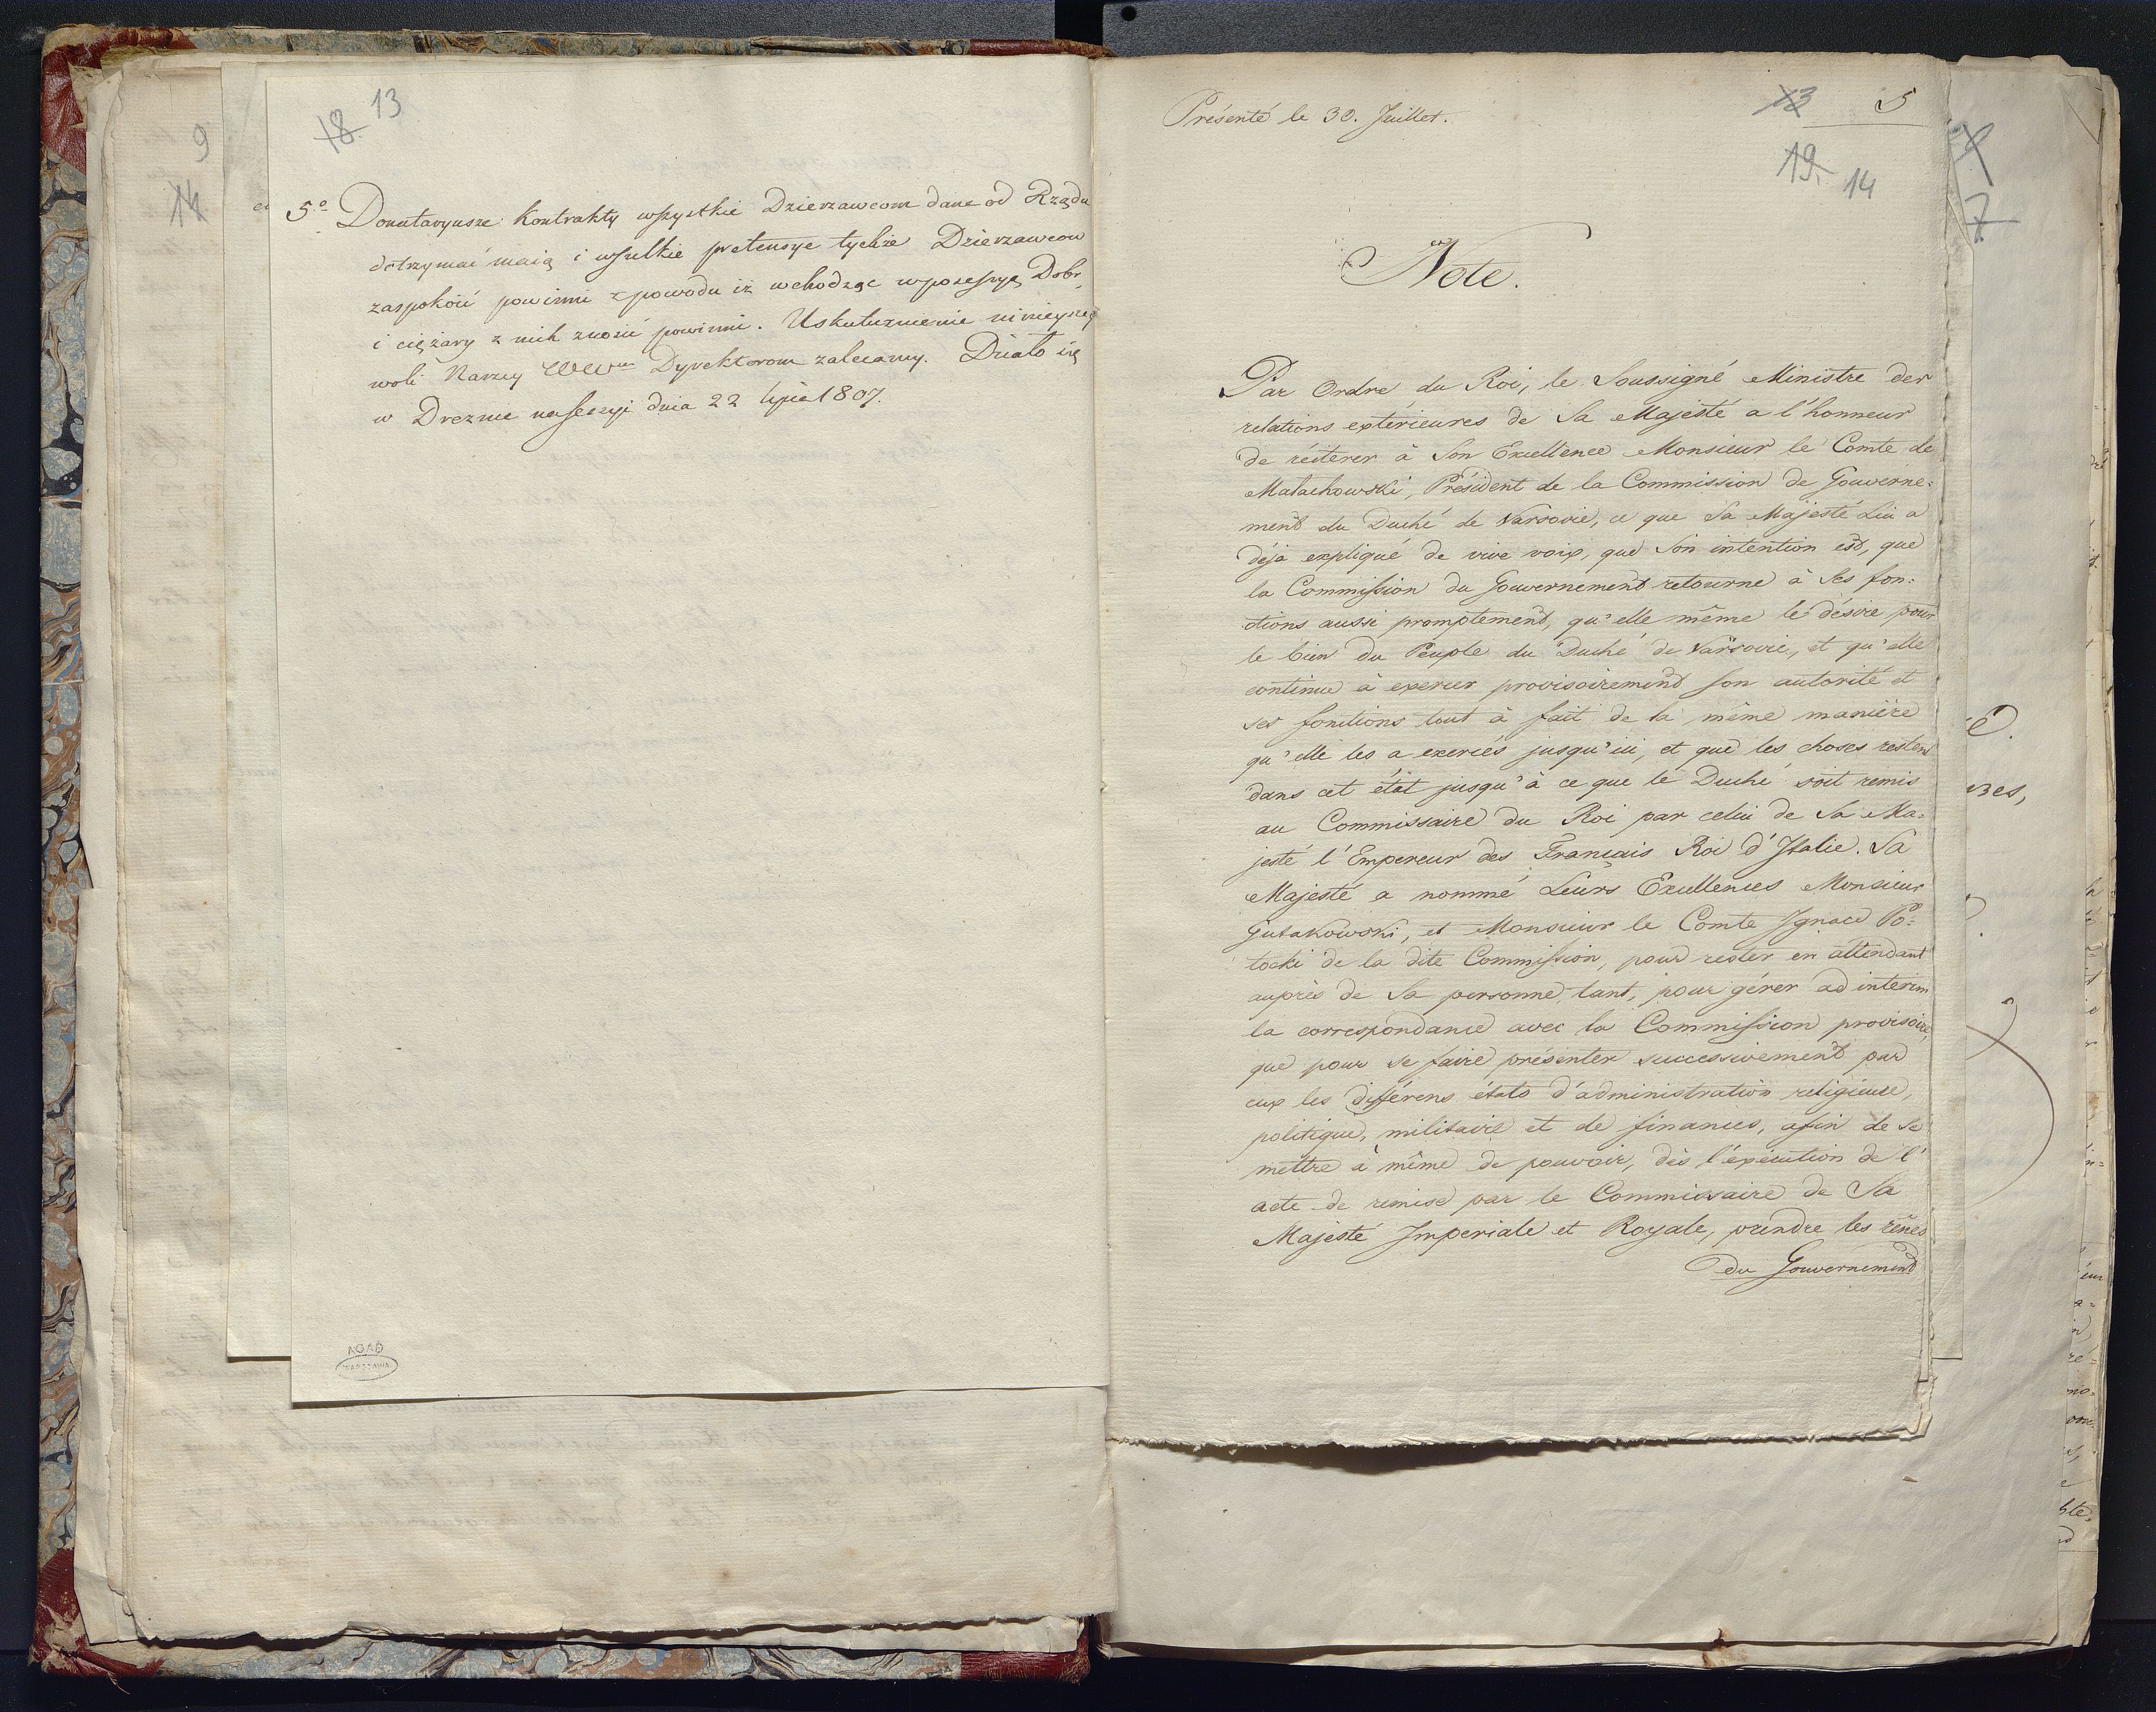 9
14
18. 13
5.º Donatariusze kontrakty wszystkie Dzierzawcom dane od Rządu
dotrzymać maią i wszelkie pretensye tychże Dzierzawcow
zaspokoić powinni z powodu iż wchodząc w possessyą Dobr
i ciężary z nich znosić powinni. Uskutecznienie ninieyszey
woli Naszey WWm Dyrektorom zalecamy. Działo się
w Dreznie na Sessyi dnia 22 lipca 1807.
AGAD
WARSZAWA
Présenté le 30. Juillet.
13 5
19. 14
Note.
Par Ordre du Roi, le Soussigné Ministre des
relations extérieures de Sa Majesté a l'honneur
de réiterer à Son Excellence Monsieur le Comte de
Małachowski, Président de la Commission de Gouverne=
ment du Duché de Varsovie, ce que Sa Majesté Lui a
déja expliqué de vive voix, que Son intention est, que
la Commission du Gouvernement retourne à Ses fon=
ctions aussi promptement, qu'elle même le désire pour
le bien du Peuple du Duché de Varsovie, et qu'elle
continue à exercer provisoirement son autorité et
ses fonctions tout à fait de la même manière
qu'elle les a exercés jusqu'ici, et que les choses restent
dans cet état jusqu'à ce que le Duché soit remis
au Commissaire du Roi par celui de Sa Ma=
jesté l'Empereur des Français Roi d'Italie. Sa
Majesté a nommé Leurs Excellences Monsieur
Gutakowski, et Monsieur le Comte Ignace Po=
tocki de la dite Commission, pour rester en attendant
auprès de Sa personne, tant, pour gérer ad interim
la correspondance avec la Commission provisoire,
que pour se faire présenter successivement par
eux les différens états d'administration religieuse,
politique, militaire et de finances, afin de se
mettre à même de pouvoir, dès l'exécution de l'
acte de remise par le Commissaire de Sa
Majesté Imperiale et Royale, prendre les rênes
du Gouvernement
7